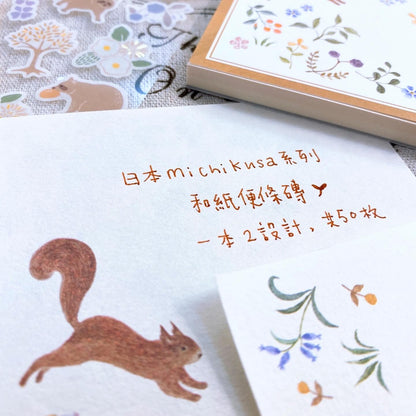 日本michikusa系列
和紙便條磚
一本2設計，共50枚